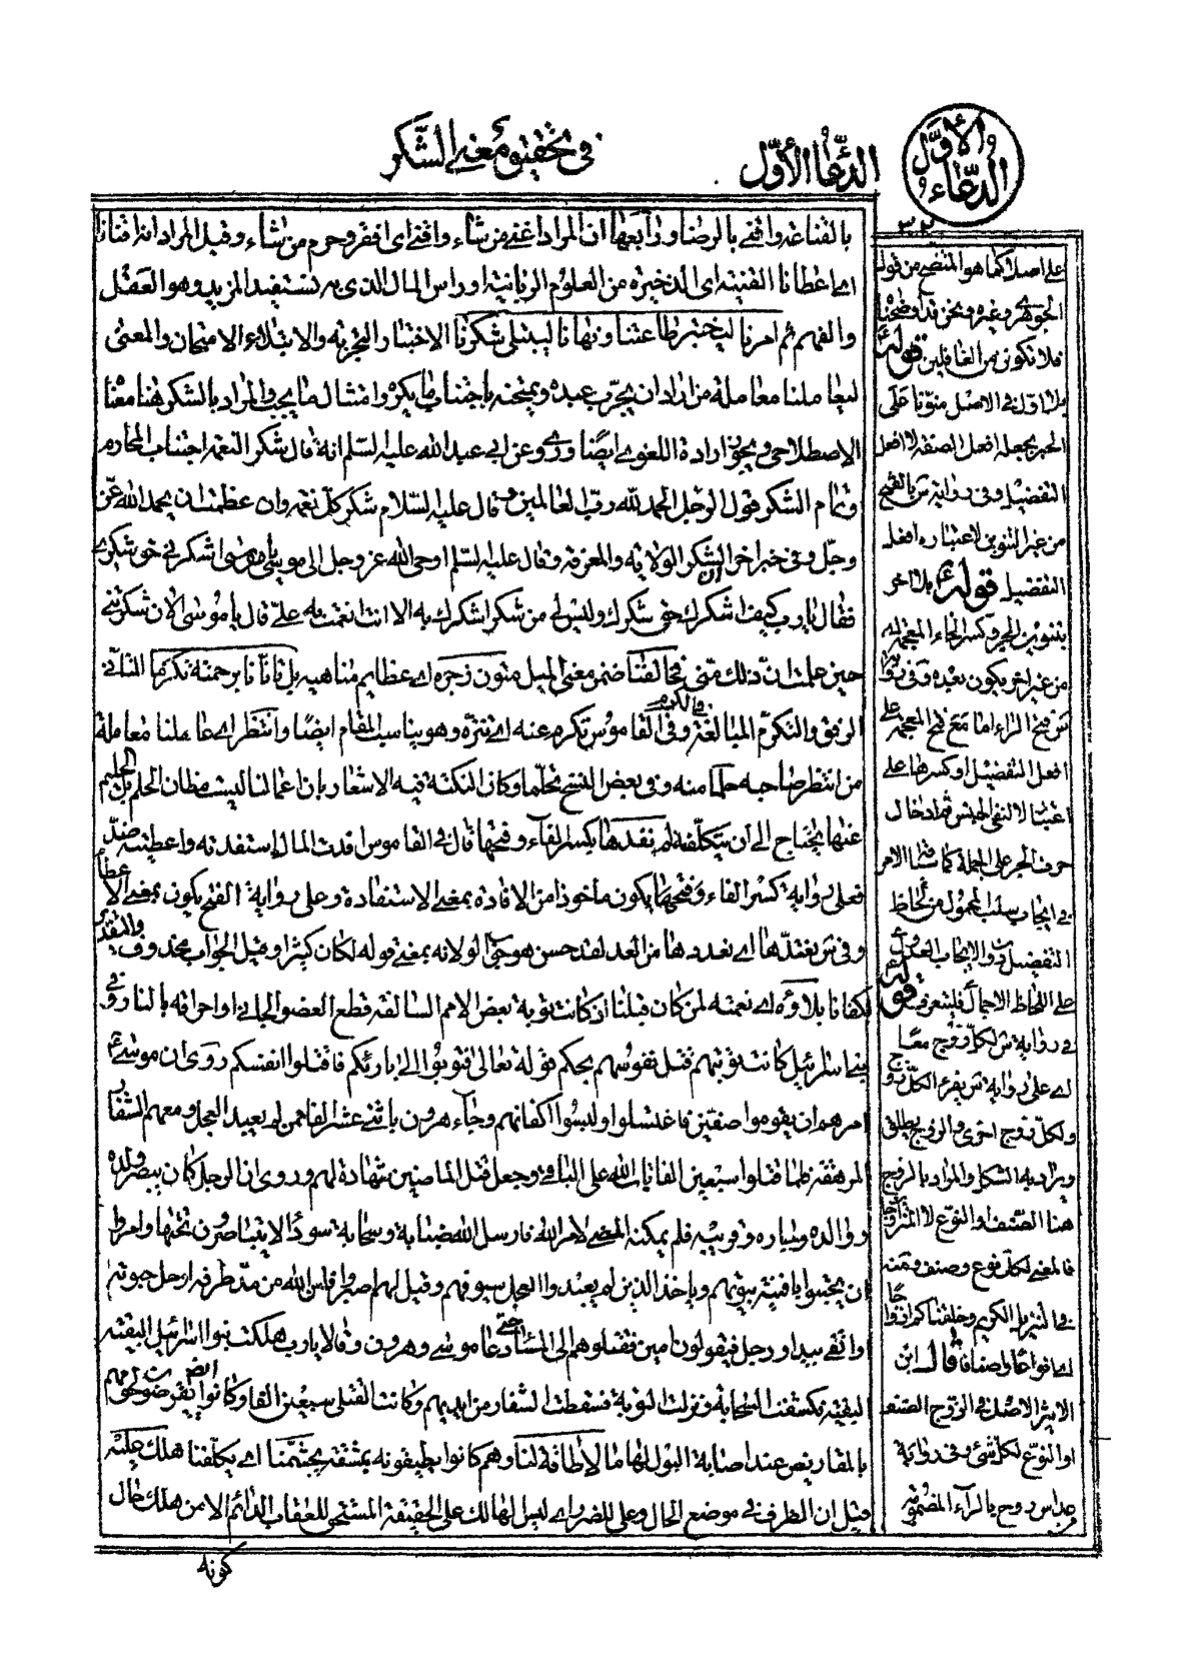 في تحقيق معنى الشكر
الدعاء الأول
الدعاء الأول
٣٢
بالقناعة واقنى بالرضا وتابعها ان المراد اغنى من شاء واقنى اى افقر وحرم من شاء وقيل المراد انه اقنانا
اى اعطانا القنية اى الذخيرة من العلوم الربانية او راس المال الذى به نستفيد المزيد وهو العقل
والفهم ثم امرنا ليختبر طاعتنا ونهانا ليبتلى شكرنا الاختبار والتجربة والابتلاء الامتحان والمعنى
ليعاملنا معاملة من اراد ان يجرب عبده ويمتحنه باجتناب ما يكره وامتثال ما يجب والمراد بالشكر هنا معناه
الاصطلاحى ويجوز ارادة اللغوى ايضا وروى عن ابى عبد الله عليه السلم انه قال شكر النعمة اجتناب المحارم
وتمام الشكر قول الرجل الحمد لله رب العالمين وقال عليه السلام شكر كل نعمة وان عظمت ان يحمد الله عز
وجل وفى خبر اخر الشكر الولاية والمعرفة وقال عليه السلم اوحى الله عز وجل الى موسى يا موسى اشكرنى حق شكرى
فقال يا رب كيف اشكرك حق شكرك وليس من شكر اشكرك به الا وانت انعمت به على قال يا موسى الان شكرتنى
حين علمت ان ذلك منى فخالفنا ضمن معنى الميل متون زجره اى عظايم مناهيه بل تانانا برحمته تكرما التانى
الرفق والتكرم المبالغة فى الكرم وفى القاموس تكرم عنه اى تنزه وهو يناسب المقام ايضا وانتظر اى عاملنا معاملة
من انتظر صاحبه حلما منه وفى بعض النسخ تحلما وكان النكتة فيه الاشعار بان اعمالنا ليست مظان الحلم بل الحليم
عنها يحتاج الى ان يتكلفه لم نفدها بكسر الفاء وفتحها قال فى القاموس افدت المال استفدته واعطيته ضد
فعلى رواية كسر الفاء وفتحها يكون ماخوذا من الافادة بمعنى الاستفادة وعلى رواية الفتح يكون بمعنى الاعطاء
وفى س نعتدها اى نعددها من العد لقد حسن هو جواب لو لانه بمعنى قوله لكان كثيرا وقيل الجواب محذوف والتقدير
لكفانا بلاؤه اى نعمته لمن كان قبلنا اذ كانت توبة بعض الامم السالفة قطع العضو الجانى او احراقه بالنار وفى
بنى اسرائيل كانت توبتهم قتل نفوسهم بحكم قوله تعالى فتوبوا الى بارئكم فاقتلوا انفسكم روى ان موسى
امرهم ان يقوموا صفين فاغتسلوا ولبسوا اكفانهم وجاء هرون باثنى عشر الفا ممن لم يعبد العجل ومعهم الشفار
المرهفة فلما قتلوا سبعين الفا تاب الله على الباقى وجعل قتل الماضين شهادة لهم وروى ان الرجل كان يبصر ولده
ووالده وجاره وقريبه فلم يمكنه المضى لامر الله فارسل الله ضبابة وسحابة سوداء لا يتباصرون تحتها وامروا
ان يحتبوا بافنية بيوتهم وياخذ الذين لم يعبدوا العجل سيوفهم وقيل لهم اصبروا فلعن الله من مد طرفه او حل حبوته
واتقى بيد او رجل فيقولون امين فقتلوهم الى المساء حتى دعا موسى وهرون وقالا يا رب هلكت بنو اسرائيل البقية
البقية فكشفت السحابة ونزلت التوبة فسقطت الشفار من ايديهم وكانت القتلى سبعين الفا وكانوا ايضا يقرضون لحومهم
بالمقاريض عند اصابة البول لها ما لا طاقة لنا وهم كانوا يطيقونه بمشقة يجشمنا اى يكلفنا هلك عليه
قيل ان الظرف فى موضع الحال وعلى للضرر اى ليس الهالك على الحقيقة المستحق للعقاب الدائم الا من هلك حال
كونه
على اصلا كما هو المتضح من قول
الجوهرى وغيره ونحن قد اوضحنا
فلا تكونن من الغافلين قوله ع
بلا اول فى الاصل منونا على
الجر بجعله افعل الصفة لا افعل
التفضيل وفى رواية س بالفتح
من غير التنوين لاعتباره افعل
التفضيل قوله ع بلا اخر
بتنوين الجر وكسر الخاء المعجمة اى
من غير اخر يكون بعده وفى رواية
س فتح الراء اما مع فتح المعجمة على
افعل التفضيل او كسرها على
اعتبار لا لنفى الجنس ثم ادخال
حرف الجر على الجملة كما شاء الامر
فى ايجاب سلب المحمول من لحاظ
التفضيل دون الايجاب العدولى
على اللحاظ الاجمالى فليتعرف قوله ع
فى رواية س لكل زوج معا
اى على رواية س يقرء لكل روح
ولكل زوج اخرى والزوج يطلق
ويراد به الشكل والمراد بالزوج
هنا الصنف والنوع لا المتزاوجا
فالمعنى لكل نوع وصنف ومنه
فى التنزيل الكريم وخلقناكم ازواجا
اى انواعا واصنافا قال ابن
الاثير الاصل فى الزوج الصنف
او النوع لكل شئ وفى رواية
س روح بالراء المضمومة